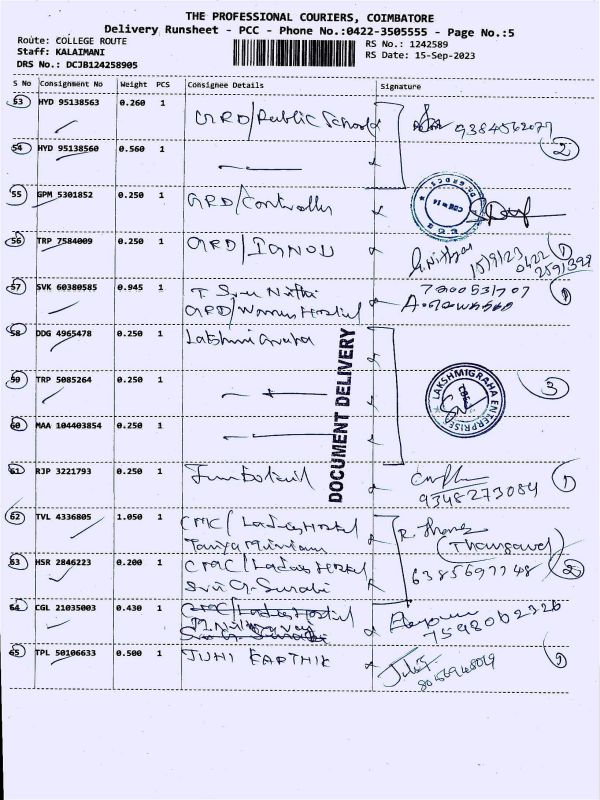 THE PROFESSIONAL COURIERS, COIMBATORE
Delivery Runsheet - PCC - Phone No.:0422-3505555 - Page No.:5
Route: COLLEGE ROUTE
RS No.: 1242589
Staff: KALAIMANI
RS Date: 15-Sep-2023
DRS No.: DCJB124258905
S No Consignment No Weight PCS Consignee Details Signature
53 HYD 95138563 0.260 1 GRD/Public School 9384562077
54 HYD 95138560 0.560 1 2
55 GPM 5301852 0.250 1 GRD/Controller
56 TRP 7584009 0.250 1 GRD/IGNOU 15/9/23 0422 2591399 1
57 SVK 60380585 0.945 1 T. Sree Nithi 7200531707 1
GRD/Womens Hostel
58 DDG 4965478 0.250 1 Lakshmi Graha
DOCUMENT DELIVERY
59 TRP 5085264 0.250 1 3
LAKSHMIGRAHA ENTERPRISES
60 MAA 104403854 0.250 1
61 RJP 3221793 0.250 1 1
9348273084
62 TVL 4336805 1.050 1 CMC/Ladies Hostel
(Thangavel)
63 HSR 2846223 0.200 1 CMC/Ladies Hostel 6385697748 2
Sri G. Surabi
64 CGL 21035003 0.430 1 CMC/Ladies Hostel
7598062326
65 TPL 50106633 0.500 1 JUHI KARTHIK
8056948019 1